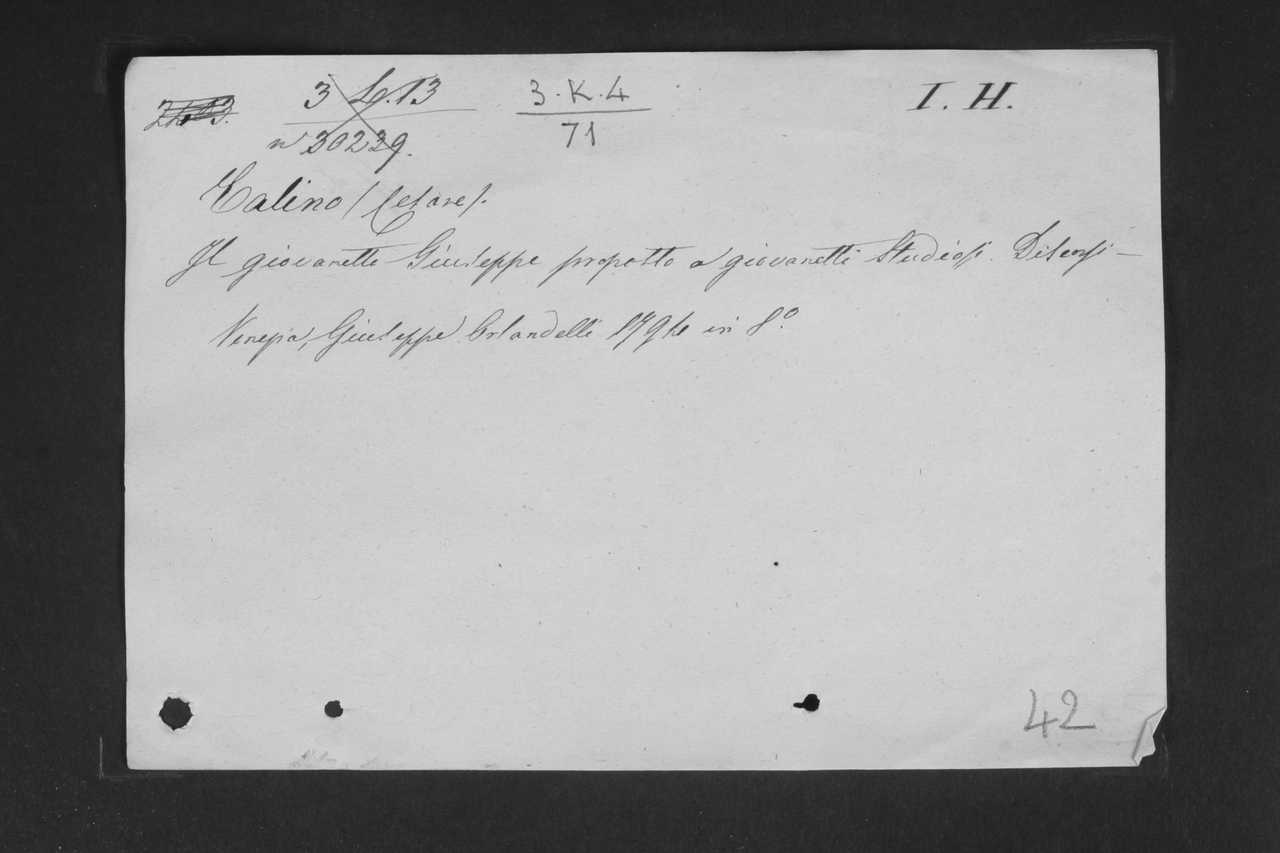 3 L. 13
3.K.4
I. H.
n 30239.
71
Calino (Cesare).
Il giovanetto Giuseppe proposto a' giovanetti studiosi. Discorsi —
Venezia, Giuseppe Orlandelli 1794 in 8.º
42